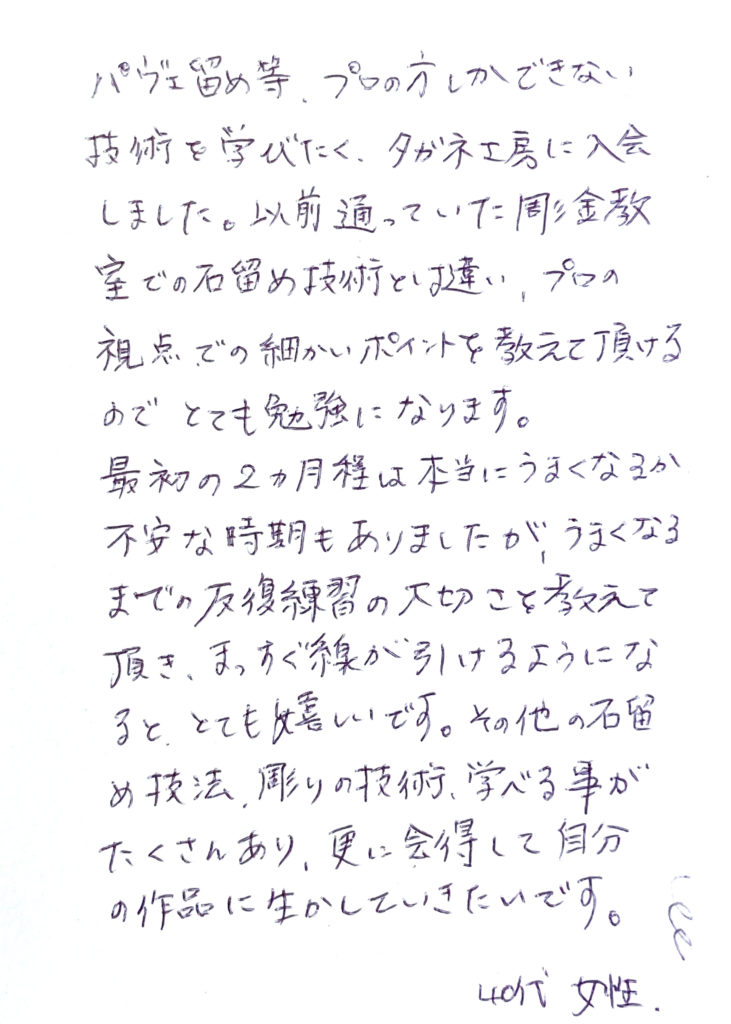 パヴェ留め等、プロの方しかできない
技術を学びたく、タガネ工房に入会
しました。以前通っていた彫金教
室での石留め技術とは違い、プロの
視点での細かいポイントを教えて頂ける
のでとても勉強になります。
最初の2ヵ月程は本当にうまくなるか
不安な時期もありましたが、うまくなる
までの反復練習の大切さを教えて
頂き、まっすぐ線が引けるようにな
ると、とても嬉しいです。その他の石留
め技法、彫りの技術、学べる事が
たくさんあり、更に会得して自分
の作品に生かしていきたいです。
40代 女性.